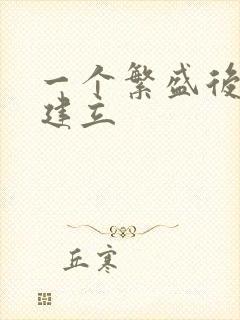 一个繁盛後
建立
丘寒